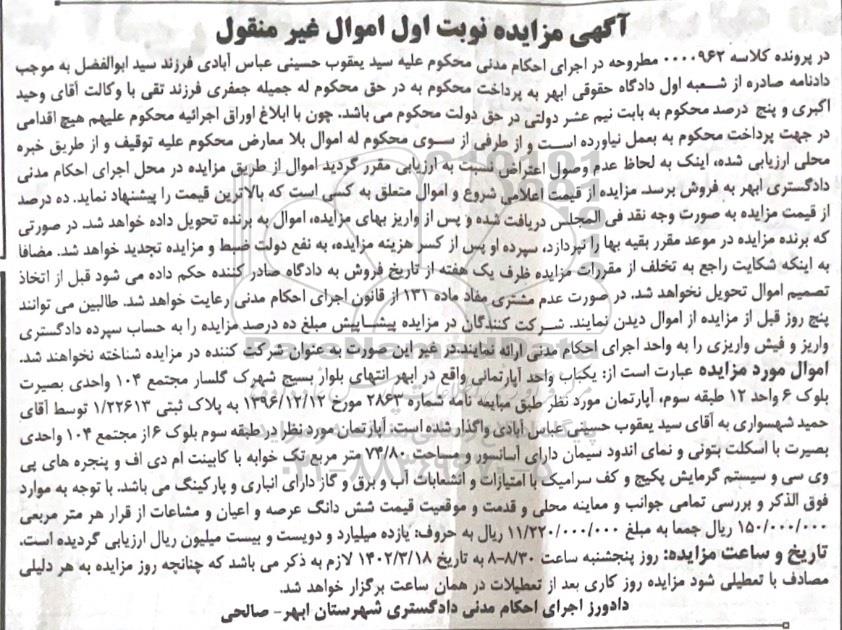 آگهی مزایده نوبت اول اموال غیر منقول
در پرونده کلاسه ۰۰۰۰۹۶۲ مطروحه در اجرای احکام مدنی محکوم علیه سید یعقوب حسینی عباس آبادی فرزند سید ابوالفضل به موجب
دادنامه صادره از شعبه اول دادگاه حقوقی ابهر به پرداخت محکوم به در حق محکوم له جمیله جعفری فرزند تقی با وکالت آقای وحید
اکبری و پنج درصد محکوم به بابت نیم عشر دولتی در حق دولت محکوم می باشد. چون با ابلاغ اوراق اجرائیه محکوم علیهم هیچ اقدامی
در جهت پرداخت محکوم به بعمل نیاورده است و از طرفی از سوی محکوم له اموال بلا معارض محکوم علیه توقیف و از طریق خبره
محلی ارزیابی شده، اینک به لحاظ عدم وصول اعتراض نسبت به ارزیابی مقرر گردید اموال از طریق مزایده در محل اجرای احکام مدنی
دادگستری ابهر به فروش برسد. مزایده از قیمت اعلامی شروع و اموال متعلق به کسی است که بالاترین قیمت را پیشنهاد نماید. ده درصد
از قیمت مزایده به صورت وجه نقد فی المجلس دریافت شده و پس از واریز بهای مزایده، اموال به برنده تحویل داده خواهد شد. در صورتی
که برنده مزایده در موعد مقرر بقیه بها را نپردازد، سپرده او پس از کسر هزینه مزایده، به نفع دولت ضبط و مزایده تجدید خواهد شد. مضافا
به اینکه شکایت راجع به تخلف از مقررات مزایده ظرف یک هفته از تاریخ فروش به دادگاه صادر کننده حکم داده می شود قبل از اتخاذ
تصمیم اموال تحویل نخواهد شد. در صورت عدم مشتری مفاد ماده ۱۳۱ از قانون اجرای احکام مدنی رعایت خواهد شد. طالبین می توانند
پنج روز قبل از مزایده از اموال دیدن نمایند. شرکت کنندگان در مزایده پیشاپیش مبلغ ده درصد مزایده را به حساب سپرده دادگستری
واریز و فیش واریزی را به واحد اجرای احکام مدنی ارائه نمایند.در غیر این صورت به عنوان شرکت کننده در مزایده شناخته نخواهند شد.
اموال مورد مزایده عبارت است از: یکباب واحد آپارتمانی واقع در ابهر انتهای بلوار بسیج شهرک گلسار مجتمع ۱۰۴ واحدی بصیرت
بلوک ۶ واحد ۱۲ طبقه سوم، آپارتمان مورد نظر طبق مبایعه نامه شماره ۲۸۶۳ مورخ ۱۳۹۶/۱۲/۱۲ به پلاک ثبتی ۱/۲۲۶۱۳ توسط آقای
حمید شهسواری به آقای سید یعقوب حسینی عباس آبادی واگذار شده است: آپارتمان مورد نظر در طبقه سوم بلوک ۶ از مجتمع ۱۰۴ واحدی
بصیرت با اسکلت بتونی و نمای اندود سیمان دارای آسانسور و مساحت ۷۴/۸۰ متر مربع تک خوابه با کابینت ام دی اف و پنجره های پی
وی سی و سیستم گرمایش پکیج و کف سرامیک با امتیازات و انشعابات آب و برق و گاز دارای انباری و پارکینگ می باشد. با توجه به موارد
فوق الذکر و بررسی تمامی جوانب و معاینه محلی و قدمت و موقعیت قیمت شش دانگ عرصه و اعیان و مشاعات از قرار هر متر مربعی
۱۵۰/۰۰۰/۰۰۰ ریال جمعا به مبلغ ۱۱/۲۲۰/۰۰۰/۰۰۰ ریال به حروف: یازده میلیارد و دویست و بیست میلیون ریال ارزیابی گردیده است.
تاریخ و ساعت مزایده: روز پنجشنبه ساعت ۸/۳۰-۸ به تاریخ ۱۴۰۲/۳/۱۸ لازم به ذکر می باشد که چنانچه روز مزایده به هر دلیلی
مصادف با تعطیلی شود مزایده روز کاری بعد از تعطیلات در همان ساعت برگزار خواهد شد.
دادورز اجرای احکام مدنی دادگستری شهرستان ابهر- صالحی